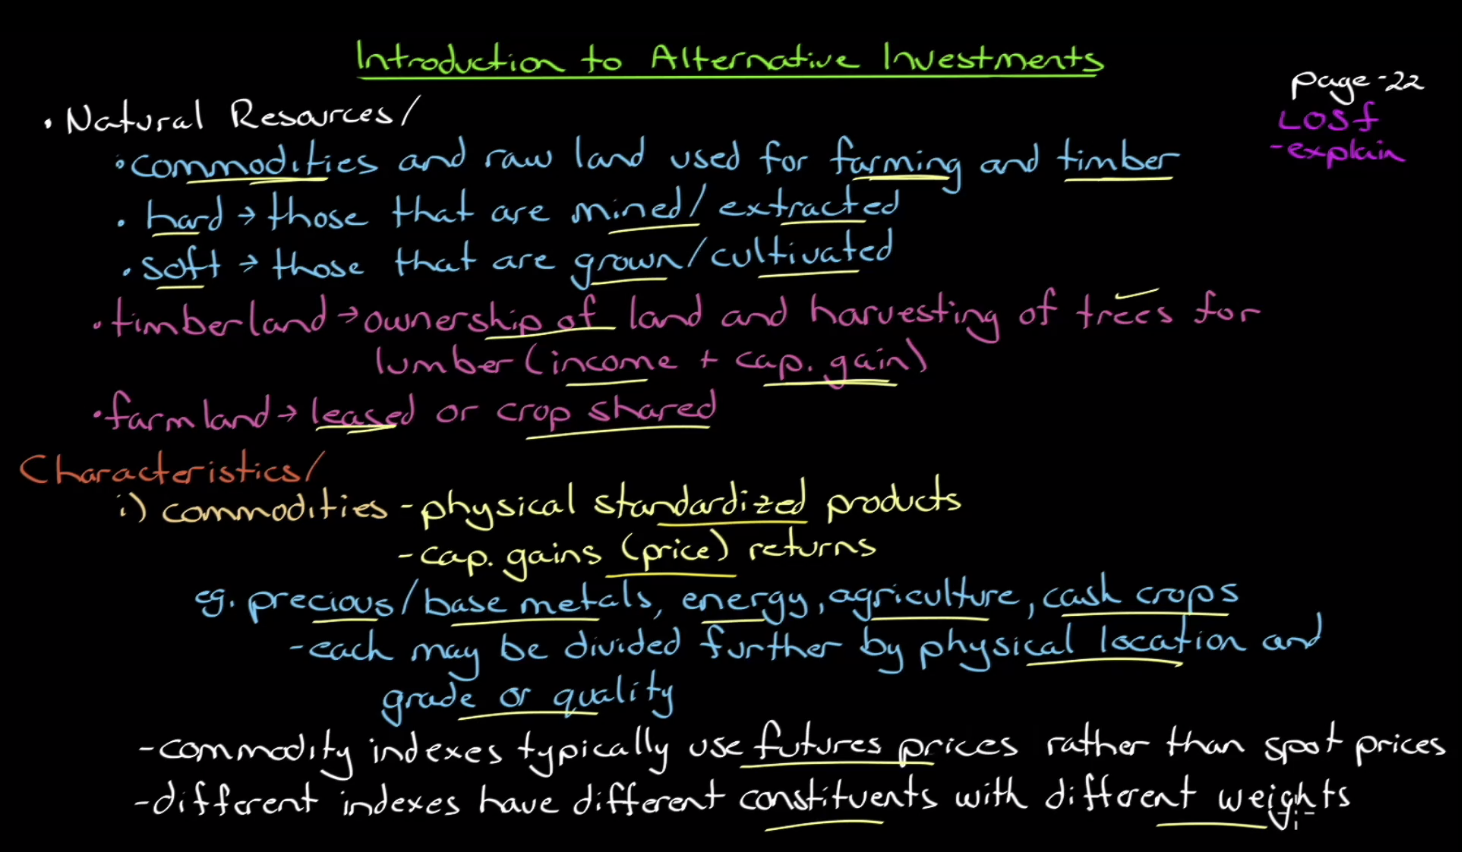 Introduction to Alternative Investments
page -22
LOS f
- explain
• Natural Resources/
• commodities and raw land used for farming and timber
• hard → those that are mined/extracted
• soft → those that are grown/cultivated
• timberland → ownership of land and harvesting of trees for
lumber (income + cap. gain)
• farmland → leased or crop shared
Characteristics/
i) commodities - physical standardized products
- cap. gains (price) returns
eg. precious/base metals, energy, agriculture, cash crops
- each may be divided further by physical location and
grade or quality
- commodity indexes typically use futures prices rather than spot prices
- different indexes have different constituents with different weights